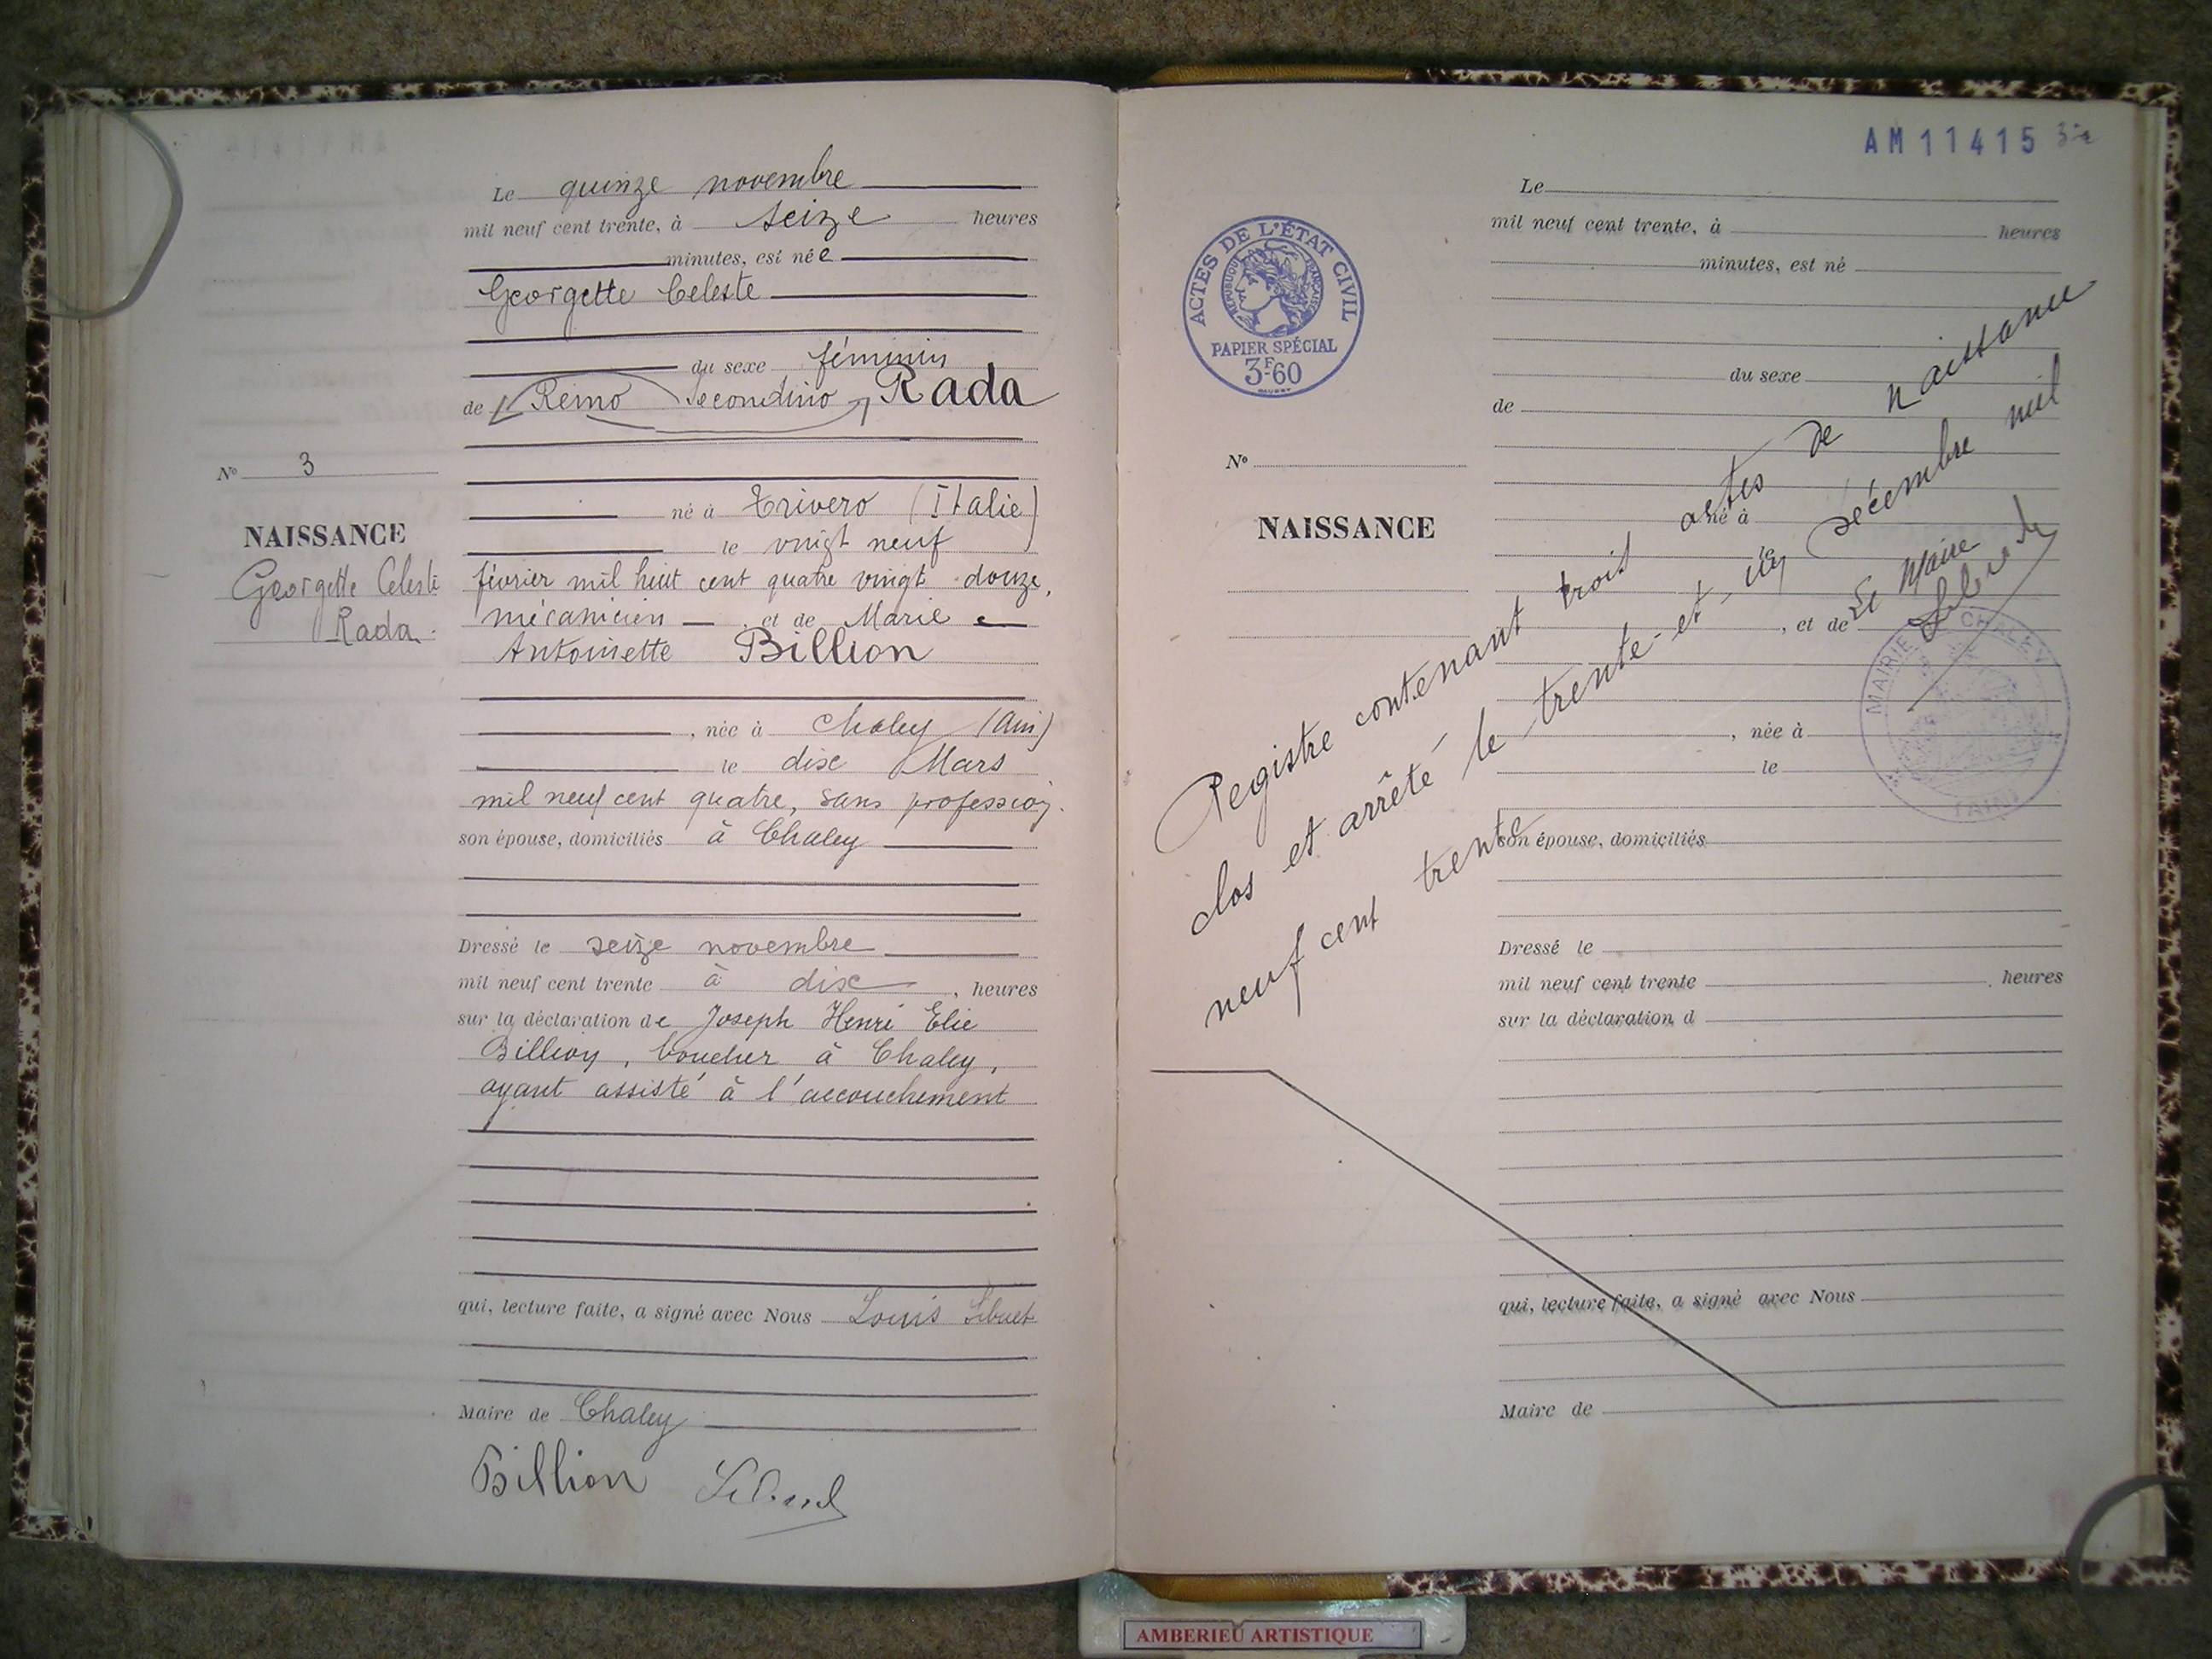 Le quinze novembre
mil neuf cent trente, à seize heures
minutes, est née
Georgette Celeste
du sexe féminin
de Remo Secondino Rada
N° 3
né à Trivero (Italie)
NAISSANCE
le vingt neuf
Georgette Celeste
février mil huit cent quatre vingt douze,
Rada.
mécanicien , et de Marie
Antoinette Billion
, née à Chaley (Ain)
le dix Mars
mil neuf cent quatre, sans profession.
son épouse, domiciliés à Chaley
Dressé le seize novembre
mil neuf cent trente à dix , heures
sur la déclaration de Joseph Henri Elie
Billion, boucher à Chaley,
ayant assisté à l'accouchement
qui, lecture faite, a signé avec Nous Louis Sibuet
Maire de Chaley
Billion Sibuet
AM 11415
ACTES DE L'ÉTAT CIVIL
RÉPUBLIQUE FRANÇAISE
PAPIER SPÉCIAL
3F60
Le
mil neuf cent trente, à heures
minutes, est né
du sexe
de
N°
NAISSANCE
né à
le
, et de
, née à
le
son épouse, domiciliés
Dressé le
mil neuf cent trente , heures
sur la déclaration d
qui, lecture faite, a signé avec Nous
Maire de
Registre contenant trois actes de naissance
clos et arrêté le trente-et-un décembre mil
neuf cent trente
Le Maire
Sibuet
MAIRIE DE CHALEY
(AIN)
AMBERIEU ARTISTIQUE